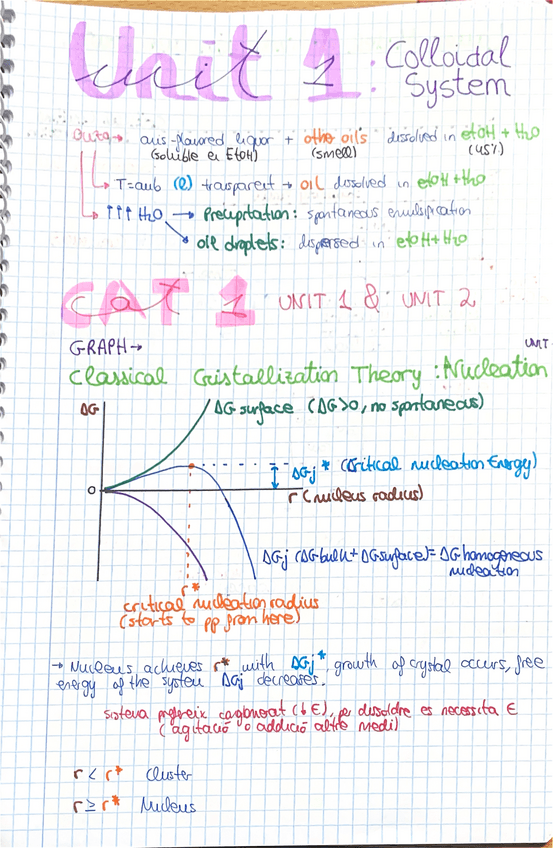 Unit 1: Colloidal System
Outzo → anis-flavored liquor + othe oil's dissolved in etOH + H2O
(soluble en EtOH) (smell) (45%)
T=amb (l) transparent → oil dissolved in etOH+H2O
↑↑↑ H2O → Precipitation: spontaneous emulsification
oil droplets: dispersed in etOH+H2O
CAT 1 UNIT 1 & UNIT 2
GRAPH →
UNIT
Classical Cristallization Theory: Nucleation
ΔG
ΔG surface (ΔG>0, no spontaneous)
ΔGj* (Critical nucleation Energy)
0
r (nucleus radius)
ΔGj (ΔGbulk + ΔGsurface) = ΔG homogeneous
nucleation
r*
critical nucleation radius
(starts to pp from here)
→ Nucleus achieves r* with ΔGj*, growth of crystal occurs, free
energy of the system ΔGj decreases.
sistema prefereix aglomerat (↓E), per dissoldre es necessita E
(agitació o addició altre medi)
r < r* Cluster
r ≥ r* Nucleus